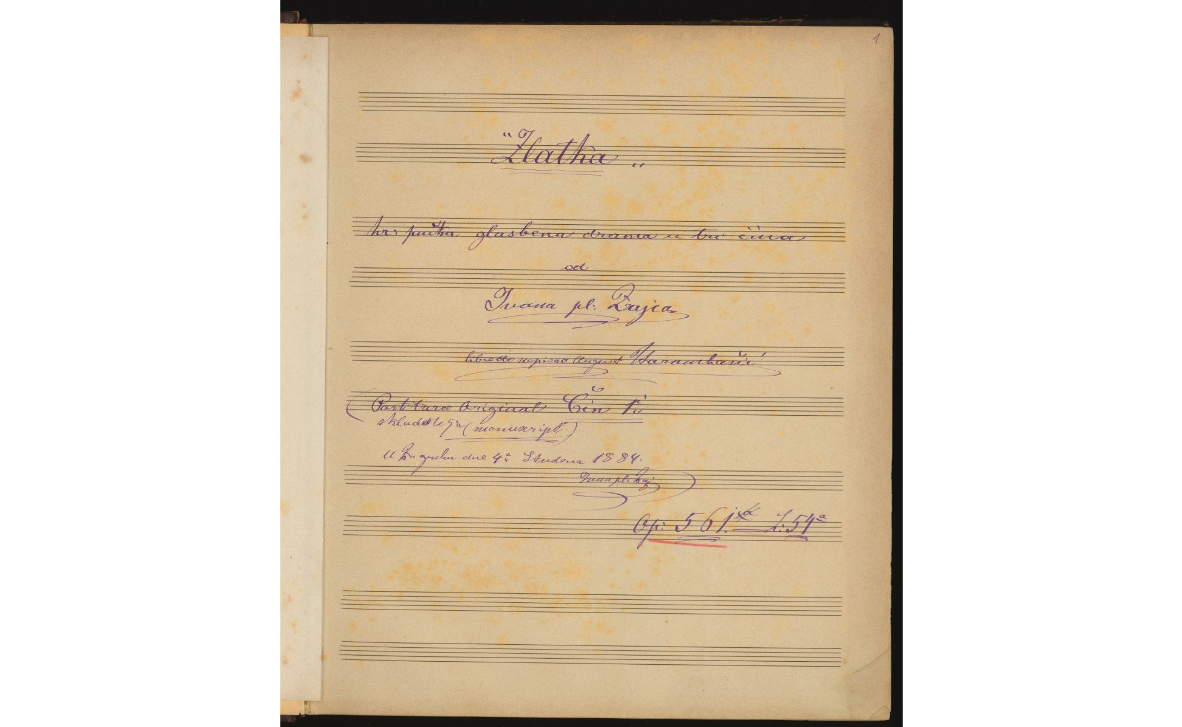 1
"Zlatka"
hr: pučka glasbena drama u tri čina
od
Ivana pl: Zajca
libretto napisao August Harambašić
(Partitura Original Čin I.
skladatelja (manuskript)
U Zagrebu dne 4ª Studena 1884.
Ivan pl. Zajc
Op: 561. 54ª